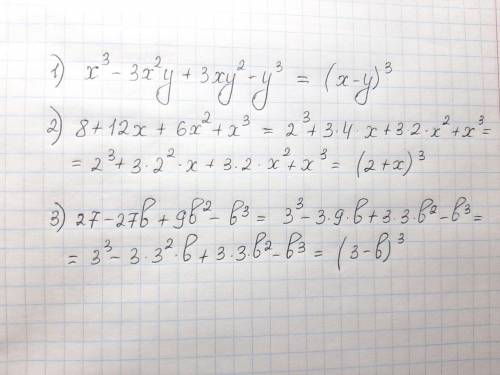 1) x³ - 3x²y + 3xy² - y³ = (x-y)³
2) 8 + 12x + 6x² + x³ = 2³ + 3·4·x + 3·2·x² + x³ =
= 2³ + 3·2²·x + 3·2·x² + x³ = (2+x)³
3) 27 - 27b + 9b² - b³ = 3³ - 3·9·b + 3·3·b² - b³ =
= 3³ - 3·3²·b + 3·3·b² - b³ = (3-b)³